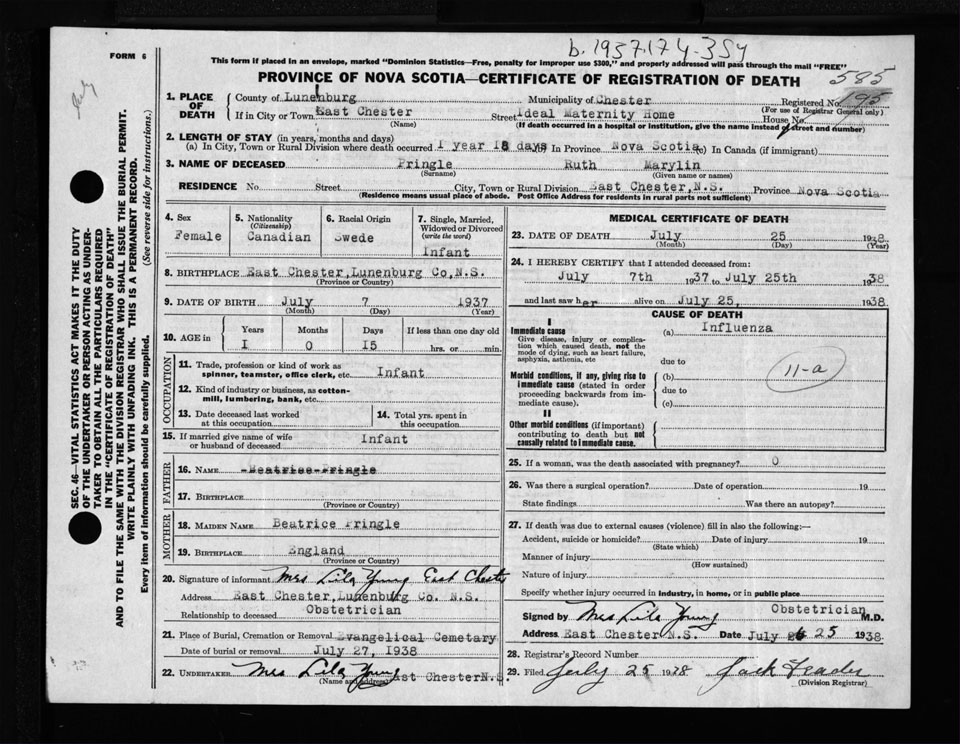 b. 1937.174-354
FORM 6
This form if placed in an envelope, marked "Dominion Statistics—Free, penalty for improper use $300," and properly addressed will pass through the mail "FREE"
PROVINCE OF NOVA SCOTIA—CERTIFICATE OF REGISTRATION OF DEATH
585
195
July
1. PLACE OF DEATH
County of Lunenburg Municipality of Chester Registered No.
(For use of Registrar General only)
If in City or Town East Chester Street Ideal Maternity Home House No.
(Name) (If death occurred in a hospital or institution, give the name instead of street and number)
2. LENGTH OF STAY (in years, months and days)
(a) In City, Town or Rural Division where death occurred 1 year 18 days (b) In Province Nova Scotia (c) In Canada (if immigrant)
3. NAME OF DECEASED Pringle Ruth Marylin
(Surname) (Given name or names)
RESIDENCE No. Street City, Town or Rural Division East Chester, N.S. Province Nova Scotia
(Residence means usual place of abode. Post Office Address for residents in rural parts not sufficient)
4. Sex Female
5. Nationality (Citizenship) Canadian
6. Racial Origin Swede
7. Single, Married, Widowed or Divorced (write the word) Infant
8. BIRTHPLACE East Chester, Lunenburg Co, N.S.
(Province or Country)
9. DATE OF BIRTH July 7 1937
(Month) (Day) (Year)
10. AGE in Years Months Days If less than one day old
I 0 I5 hrs. or min.
OCCUPATION
11. Trade, profession or kind of work as spinner, teamster, office clerk, etc. Infant
12. Kind of industry or business, as cotton-mill, lumbering, bank, etc.
13. Date deceased last worked at this occupation
14. Total yrs. spent in this occupation
15. If married give name of wife or husband of deceased Infant
FATHER
16. NAME Beatrice Pringle
17. BIRTHPLACE
(Province or Country)
MOTHER
18. MAIDEN NAME Beatrice Pringle
19. BIRTHPLACE England
(Province or Country)
20. Signature of informant Mrs Lila Young East Chester
Address East Chester, Lunenburg Co. N.S.
Relationship to deceased Obstetrician
21. Place of Burial, Cremation or Removal Evangelical Cemetary
Date of burial or removal July 27, 1938
22. UNDERTAKER Mrs Lila Young East Chester N.S.
(Name and Address)
MEDICAL CERTIFICATE OF DEATH
23. DATE OF DEATH July 25 1938
(Month) (Day) (Year)
24. I HEREBY CERTIFY that I attended deceased from:
July 7th 1937 to July 25th 1938
and last saw her alive on July 25, 1938
CAUSE OF DEATH
I
Immediate cause
Give disease, injury or complication which caused death, not the mode of dying, such as heart failure, asphyxia, asthenia, etc
(a) Influenza
due to
11-a
Morbid conditions, if any, giving rise to immediate cause (stated in order proceeding backwards from immediate cause).
(b)
due to
(c)
II
Other morbid conditions (if important) contributing to death but not causally related to immediate cause.
25. If a woman, was the death associated with pregnancy? 0
26. Was there a surgical operation? Date of operation 19
State findings Was there an autopsy?
27. If death was due to external causes (violence) fill in also the following:—
Accident, suicide or homicide? Date of injury 19
(State which)
Manner of injury
(How sustained)
Nature of injury
Specify whether injury occurred in industry, in home, or in public place
Signed by Mrs Lila Young Obstetrician M.D.
Address East Chester N.S. Date July 25 1938
28. Registrar's Record Number
29. Filed July 25 1938 Jack Leader
(Division Registrar)
SEC. 46—VITAL STATISTICS ACT MAKES IT THE DUTY
OF THE UNDERTAKER OR PERSON ACTING AS UNDER-
TAKER TO OBTAIN ALL THE PARTICULARS REQUIRED
IN THE "CERTIFICATE OF REGISTRATION OF DEATH"
AND TO FILE THE SAME WITH THE DIVISION REGISTRAR WHO SHALL ISSUE THE BURIAL PERMIT.
WRITE PLAINLY WITH UNFADING INK. THIS IS A PERMANENT RECORD.
Every item of information should be carefully supplied. (See reverse side for instructions.)